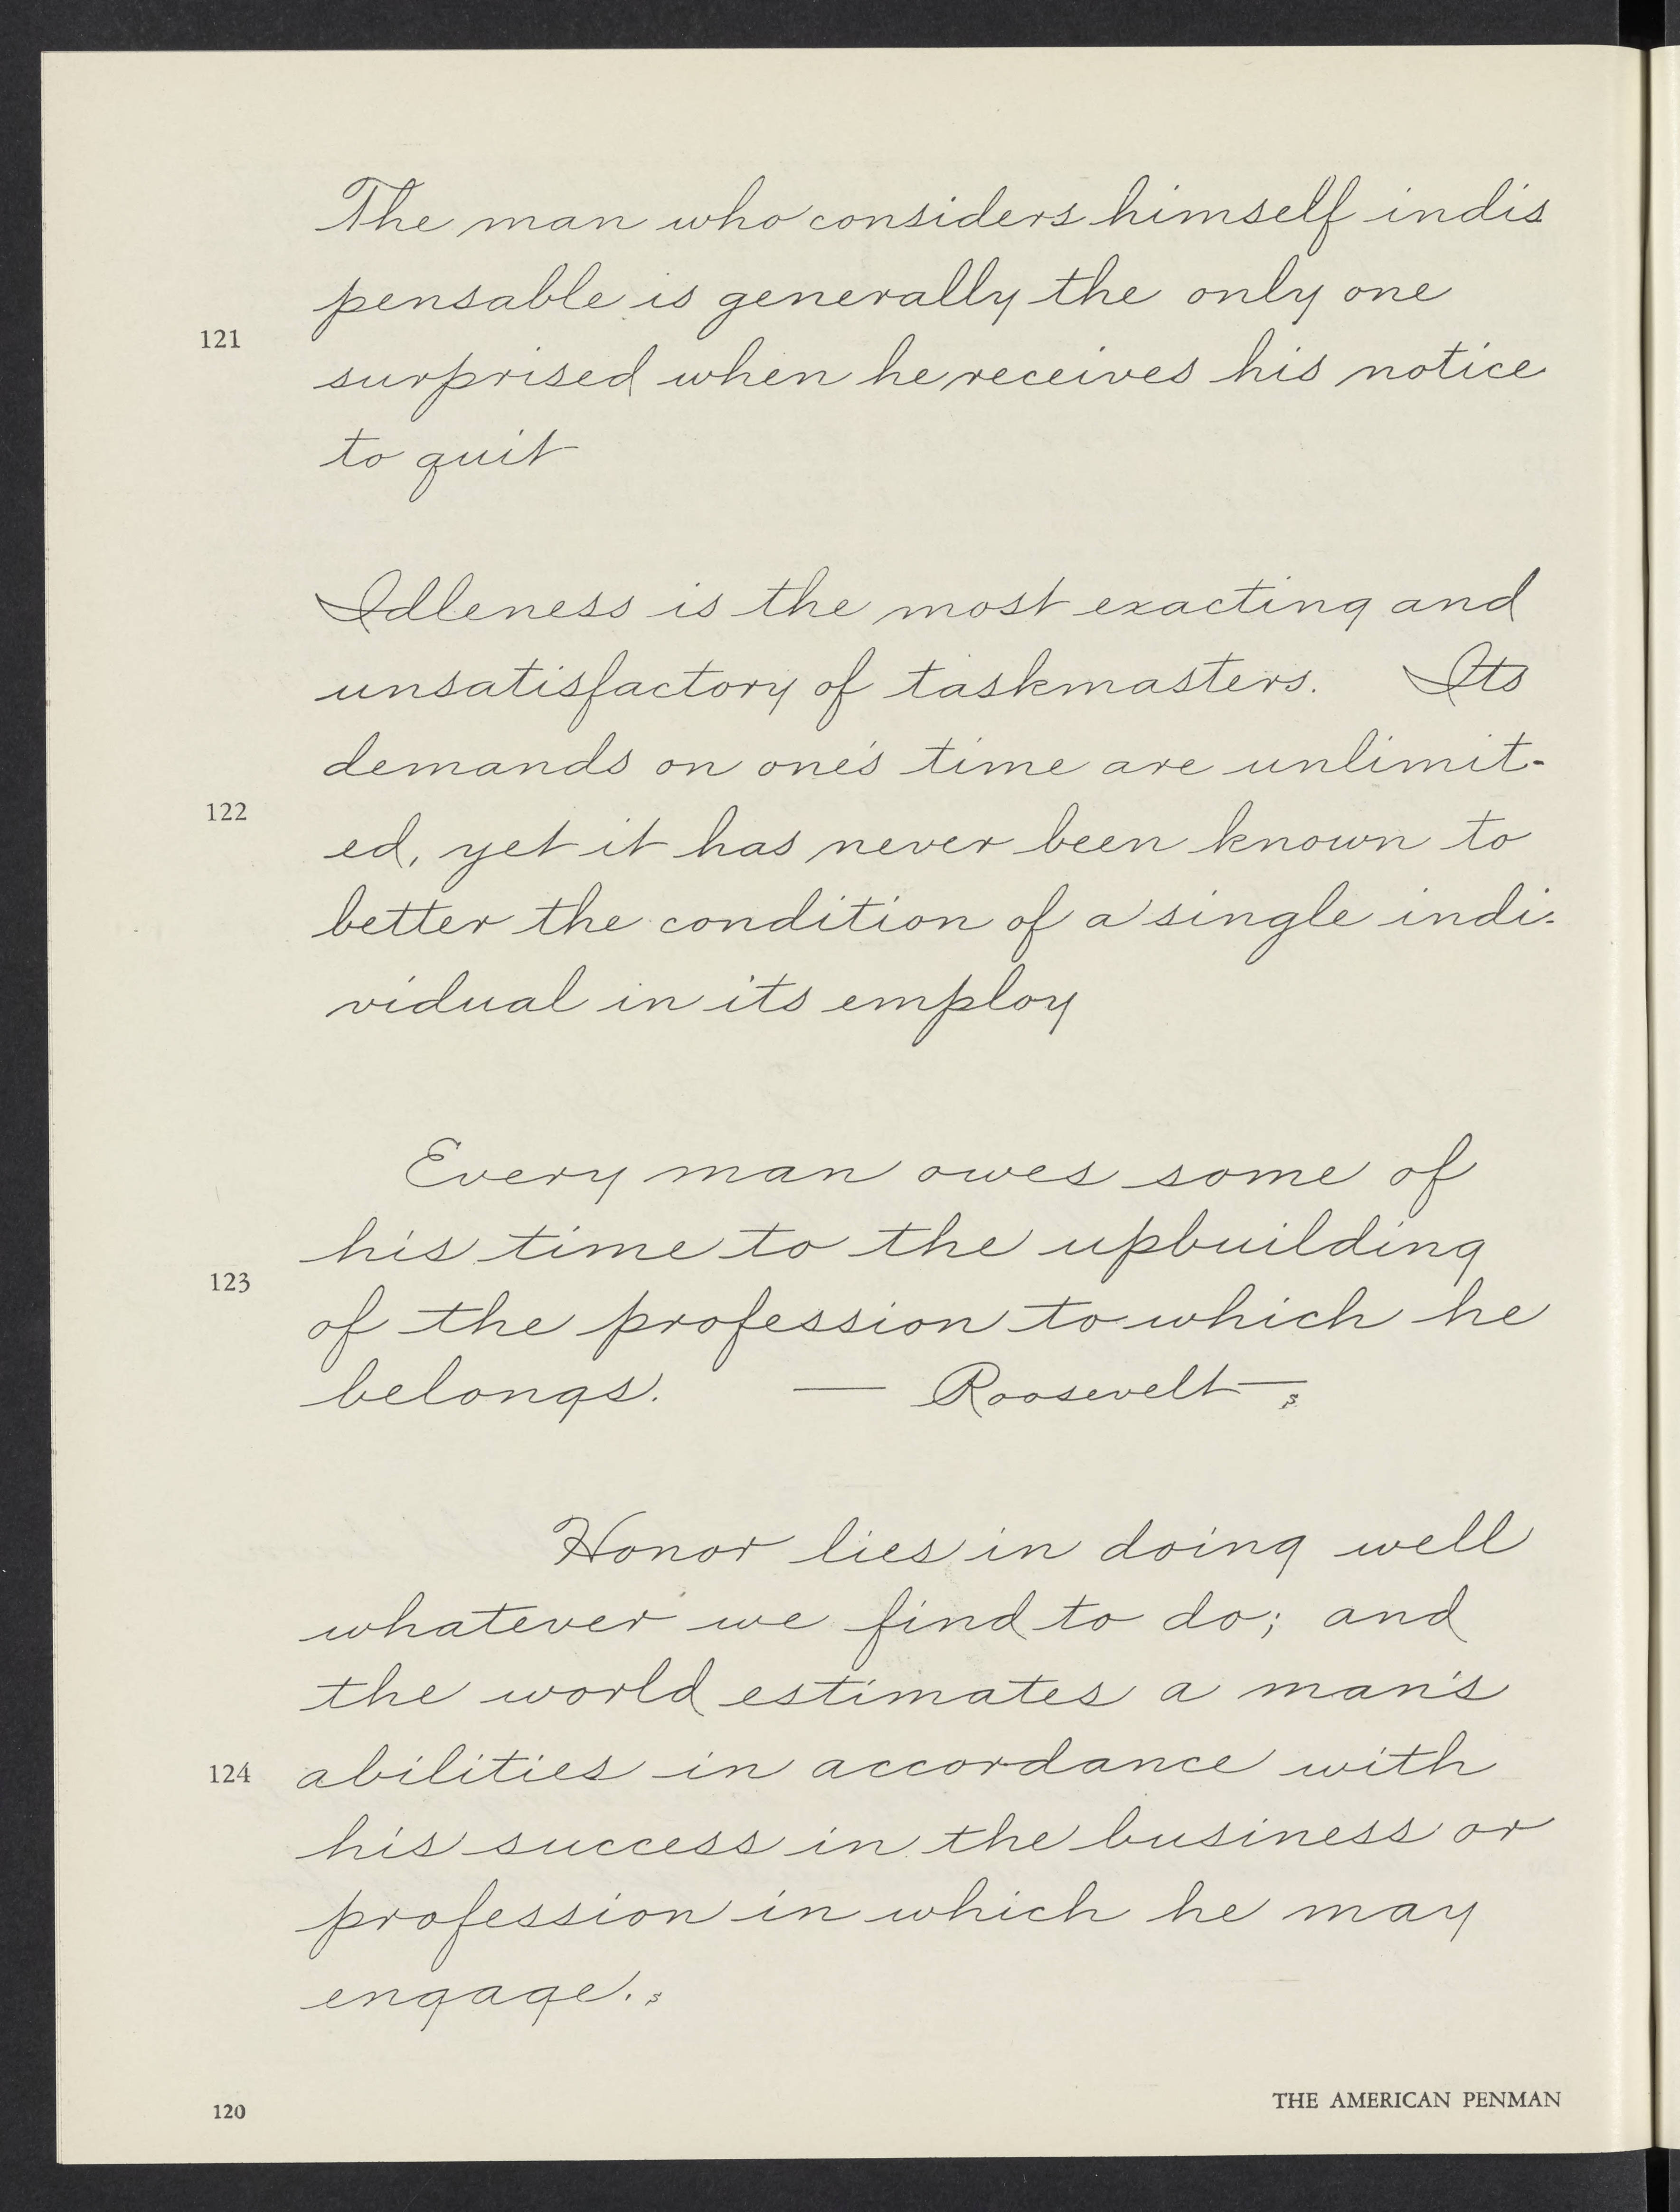 The man who considers himself indis
pensable is generally the only one
121
surprised when he receives his notice
to quit
Idleness is the most exacting and
unsatisfactory of taskmasters. Its
demands on one's time are unlimit-
122
ed, yet it has never been known to
better the condition of a single indi-
vidual in its employ
Every man owes some of
his time to the upbuilding
123
of the profession to which he
belongs. — Roosevelt
Honor lies in doing well
whatever we find to do; and
the world estimates a man's
124 abilities in accordance with
his success in the business or
profession in which he may
engage.
120
THE AMERICAN PENMAN